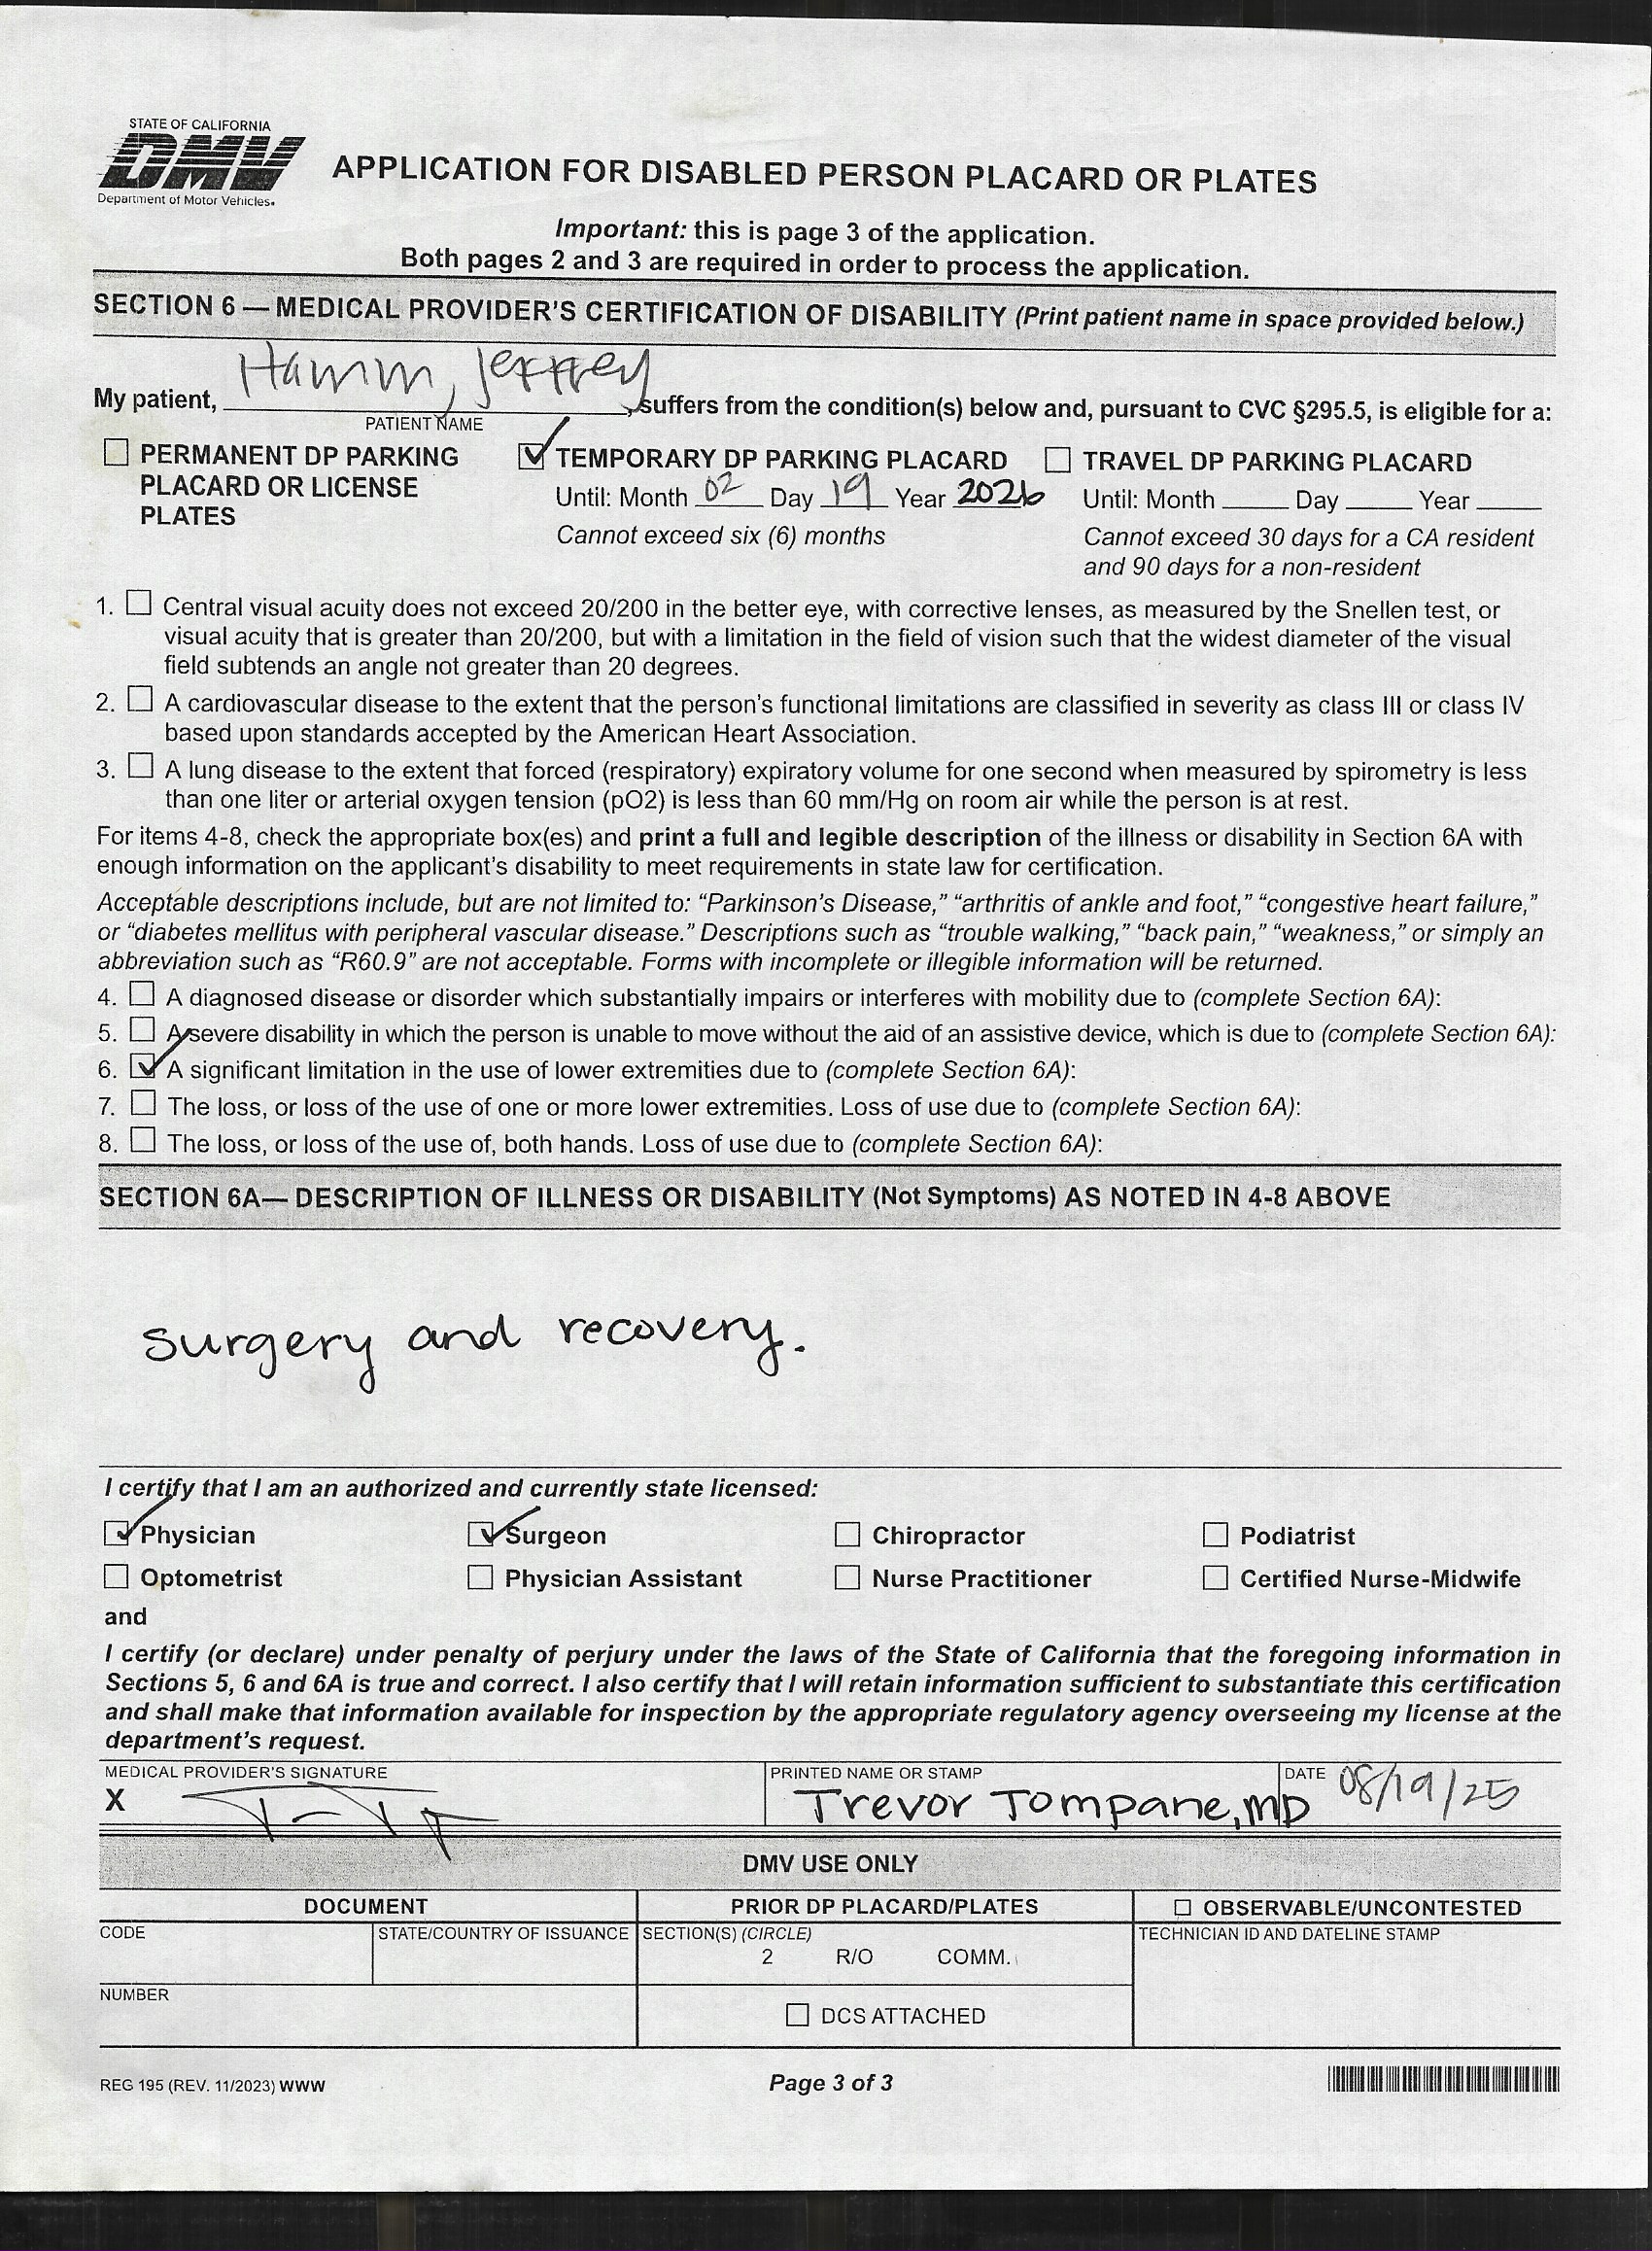 STATE OF CALIFORNIA
DMV
Department of Motor Vehicles®
APPLICATION FOR DISABLED PERSON PLACARD OR PLATES
Important: this is page 3 of the application.
Both pages 2 and 3 are required in order to process the application.
SECTION 6 — MEDICAL PROVIDER'S CERTIFICATION OF DISABILITY (Print patient name in space provided below.)
My patient, Hamm, Jeffrey, suffers from the condition(s) below and, pursuant to CVC §295.5, is eligible for a:
PATIENT NAME
PERMANENT DP PARKING
PLACARD OR LICENSE
PLATES
TEMPORARY DP PARKING PLACARD
Until: Month 02 Day 19 Year 2026
Cannot exceed six (6) months
TRAVEL DP PARKING PLACARD
Until: Month ____ Day ____ Year ____
Cannot exceed 30 days for a CA resident
and 90 days for a non-resident
1. Central visual acuity does not exceed 20/200 in the better eye, with corrective lenses, as measured by the Snellen test, or
visual acuity that is greater than 20/200, but with a limitation in the field of vision such that the widest diameter of the visual
field subtends an angle not greater than 20 degrees.
2. A cardiovascular disease to the extent that the person's functional limitations are classified in severity as class III or class IV
based upon standards accepted by the American Heart Association.
3. A lung disease to the extent that forced (respiratory) expiratory volume for one second when measured by spirometry is less
than one liter or arterial oxygen tension (pO2) is less than 60 mm/Hg on room air while the person is at rest.
For items 4-8, check the appropriate box(es) and print a full and legible description of the illness or disability in Section 6A with
enough information on the applicant's disability to meet requirements in state law for certification.
Acceptable descriptions include, but are not limited to: "Parkinson's Disease," "arthritis of ankle and foot," "congestive heart failure,"
or "diabetes mellitus with peripheral vascular disease." Descriptions such as "trouble walking," "back pain," "weakness," or simply an
abbreviation such as "R60.9" are not acceptable. Forms with incomplete or illegible information will be returned.
4. A diagnosed disease or disorder which substantially impairs or interferes with mobility due to (complete Section 6A):
5. A severe disability in which the person is unable to move without the aid of an assistive device, which is due to (complete Section 6A):
6. A significant limitation in the use of lower extremities due to (complete Section 6A):
7. The loss, or loss of the use of one or more lower extremities. Loss of use due to (complete Section 6A):
8. The loss, or loss of the use of, both hands. Loss of use due to (complete Section 6A):
SECTION 6A— DESCRIPTION OF ILLNESS OR DISABILITY (Not Symptoms) AS NOTED IN 4-8 ABOVE
surgery and recovery.
I certify that I am an authorized and currently state licensed:
Physician Surgeon Chiropractor Podiatrist
Optometrist Physician Assistant Nurse Practitioner Certified Nurse-Midwife
and
I certify (or declare) under penalty of perjury under the laws of the State of California that the foregoing information in
Sections 5, 6 and 6A is true and correct. I also certify that I will retain information sufficient to substantiate this certification
and shall make that information available for inspection by the appropriate regulatory agency overseeing my license at the
department's request.
MEDICAL PROVIDER'S SIGNATURE
X
PRINTED NAME OR STAMP
Trevor Tompane, MD
DATE 08/19/25
DMV USE ONLY
DOCUMENT
PRIOR DP PLACARD/PLATES
OBSERVABLE/UNCONTESTED
CODE
STATE/COUNTRY OF ISSUANCE
SECTION(S) (CIRCLE)
2 R/O COMM.
TECHNICIAN ID AND DATELINE STAMP
NUMBER
DCS ATTACHED
REG 195 (REV. 11/2023) WWW
Page 3 of 3